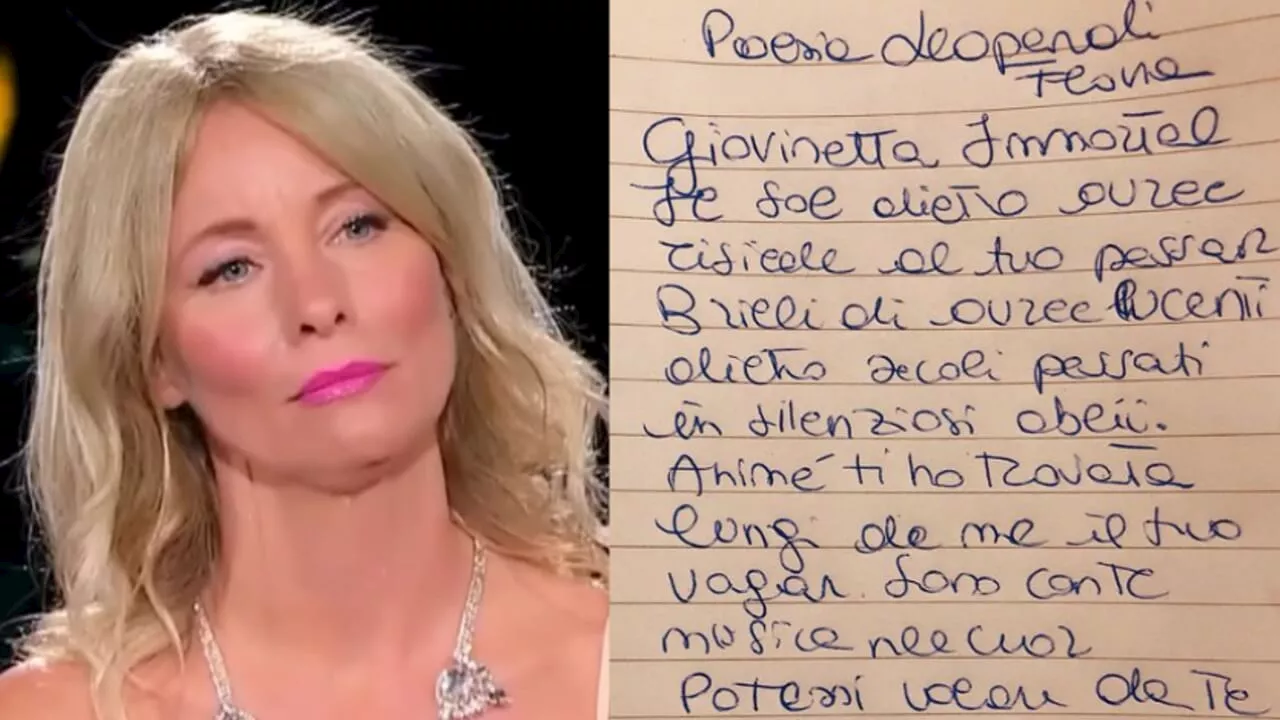 Poesia
Giovinetta Immortal
dietro auree
al tuo passar
Brilli di auree lucenti
dietro secoli passati
in silenziosi oblii.
Anima ti ho trovata
lungi da me il tuo
vagar. Sono con Te
musica nel cuor
Potessi volar da Te